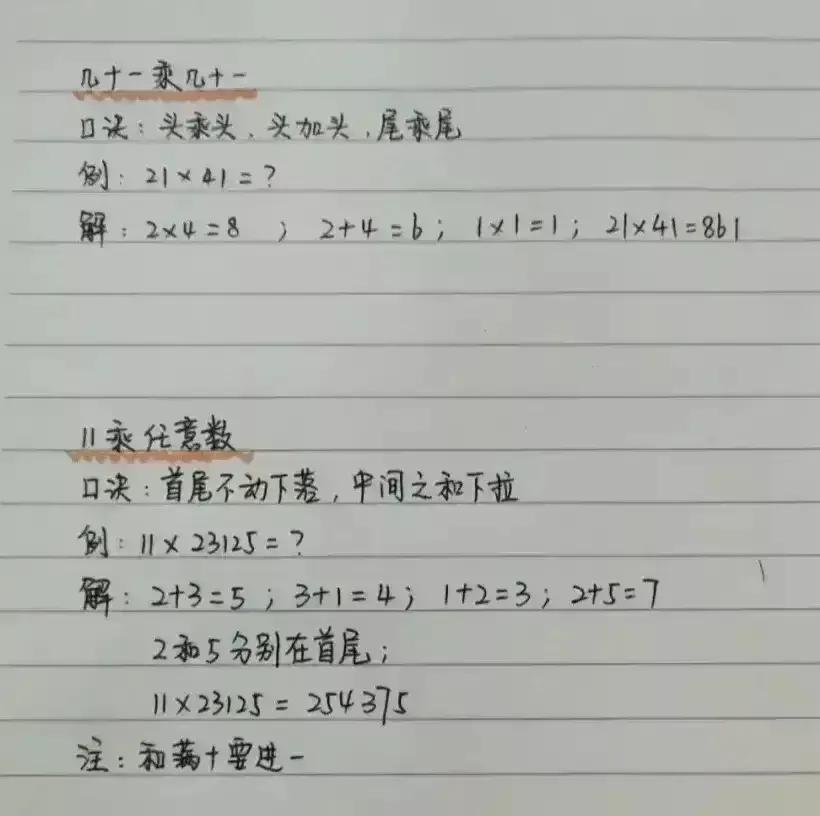 几十一乘几十一
口决：头乘头、头加头，尾乘尾
例：21×41=？
解：2×4=8 ； 2+4=6； 1×1=1； 21×41=861
11乘任意数
口决：首尾不动下落，中间之和下拉
例：11×23125=？
解：2+3=5；3+1=4；1+2=3；2+5=7
2和5分别在首尾；
11×23125=254375
注：和满十要进一